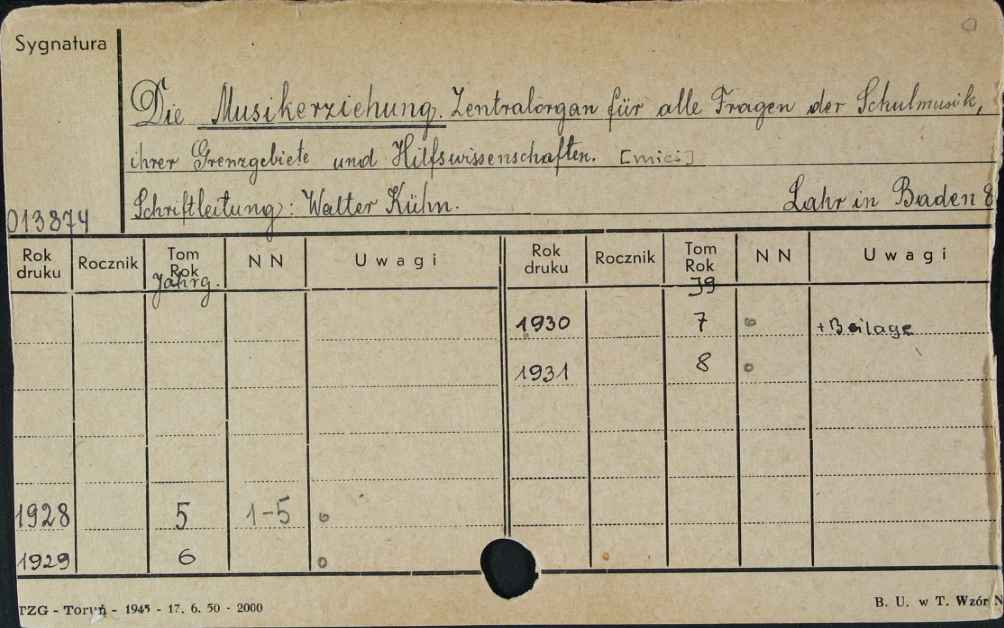 Sygnatura
Die Musikerziehung. Zentralorgan für alle Fragen der Schulmusik,
ihrer Grenzgebiete und Hilfswissenschaften.
Schriftleitung: Walter Kühn. Lahr in Baden 8
013874
Rok druku Rocznik Tom Rok N N Uwagi Rok druku Rocznik Tom Rok N N Uwagi
Jahrg. Jg
1930 7 + Beilage
1931 8
1928 5 1-5
1929 6
TZG - Toruń - 1945 - 17. 6. 50 - 2000 B. U. w T. Wzór N